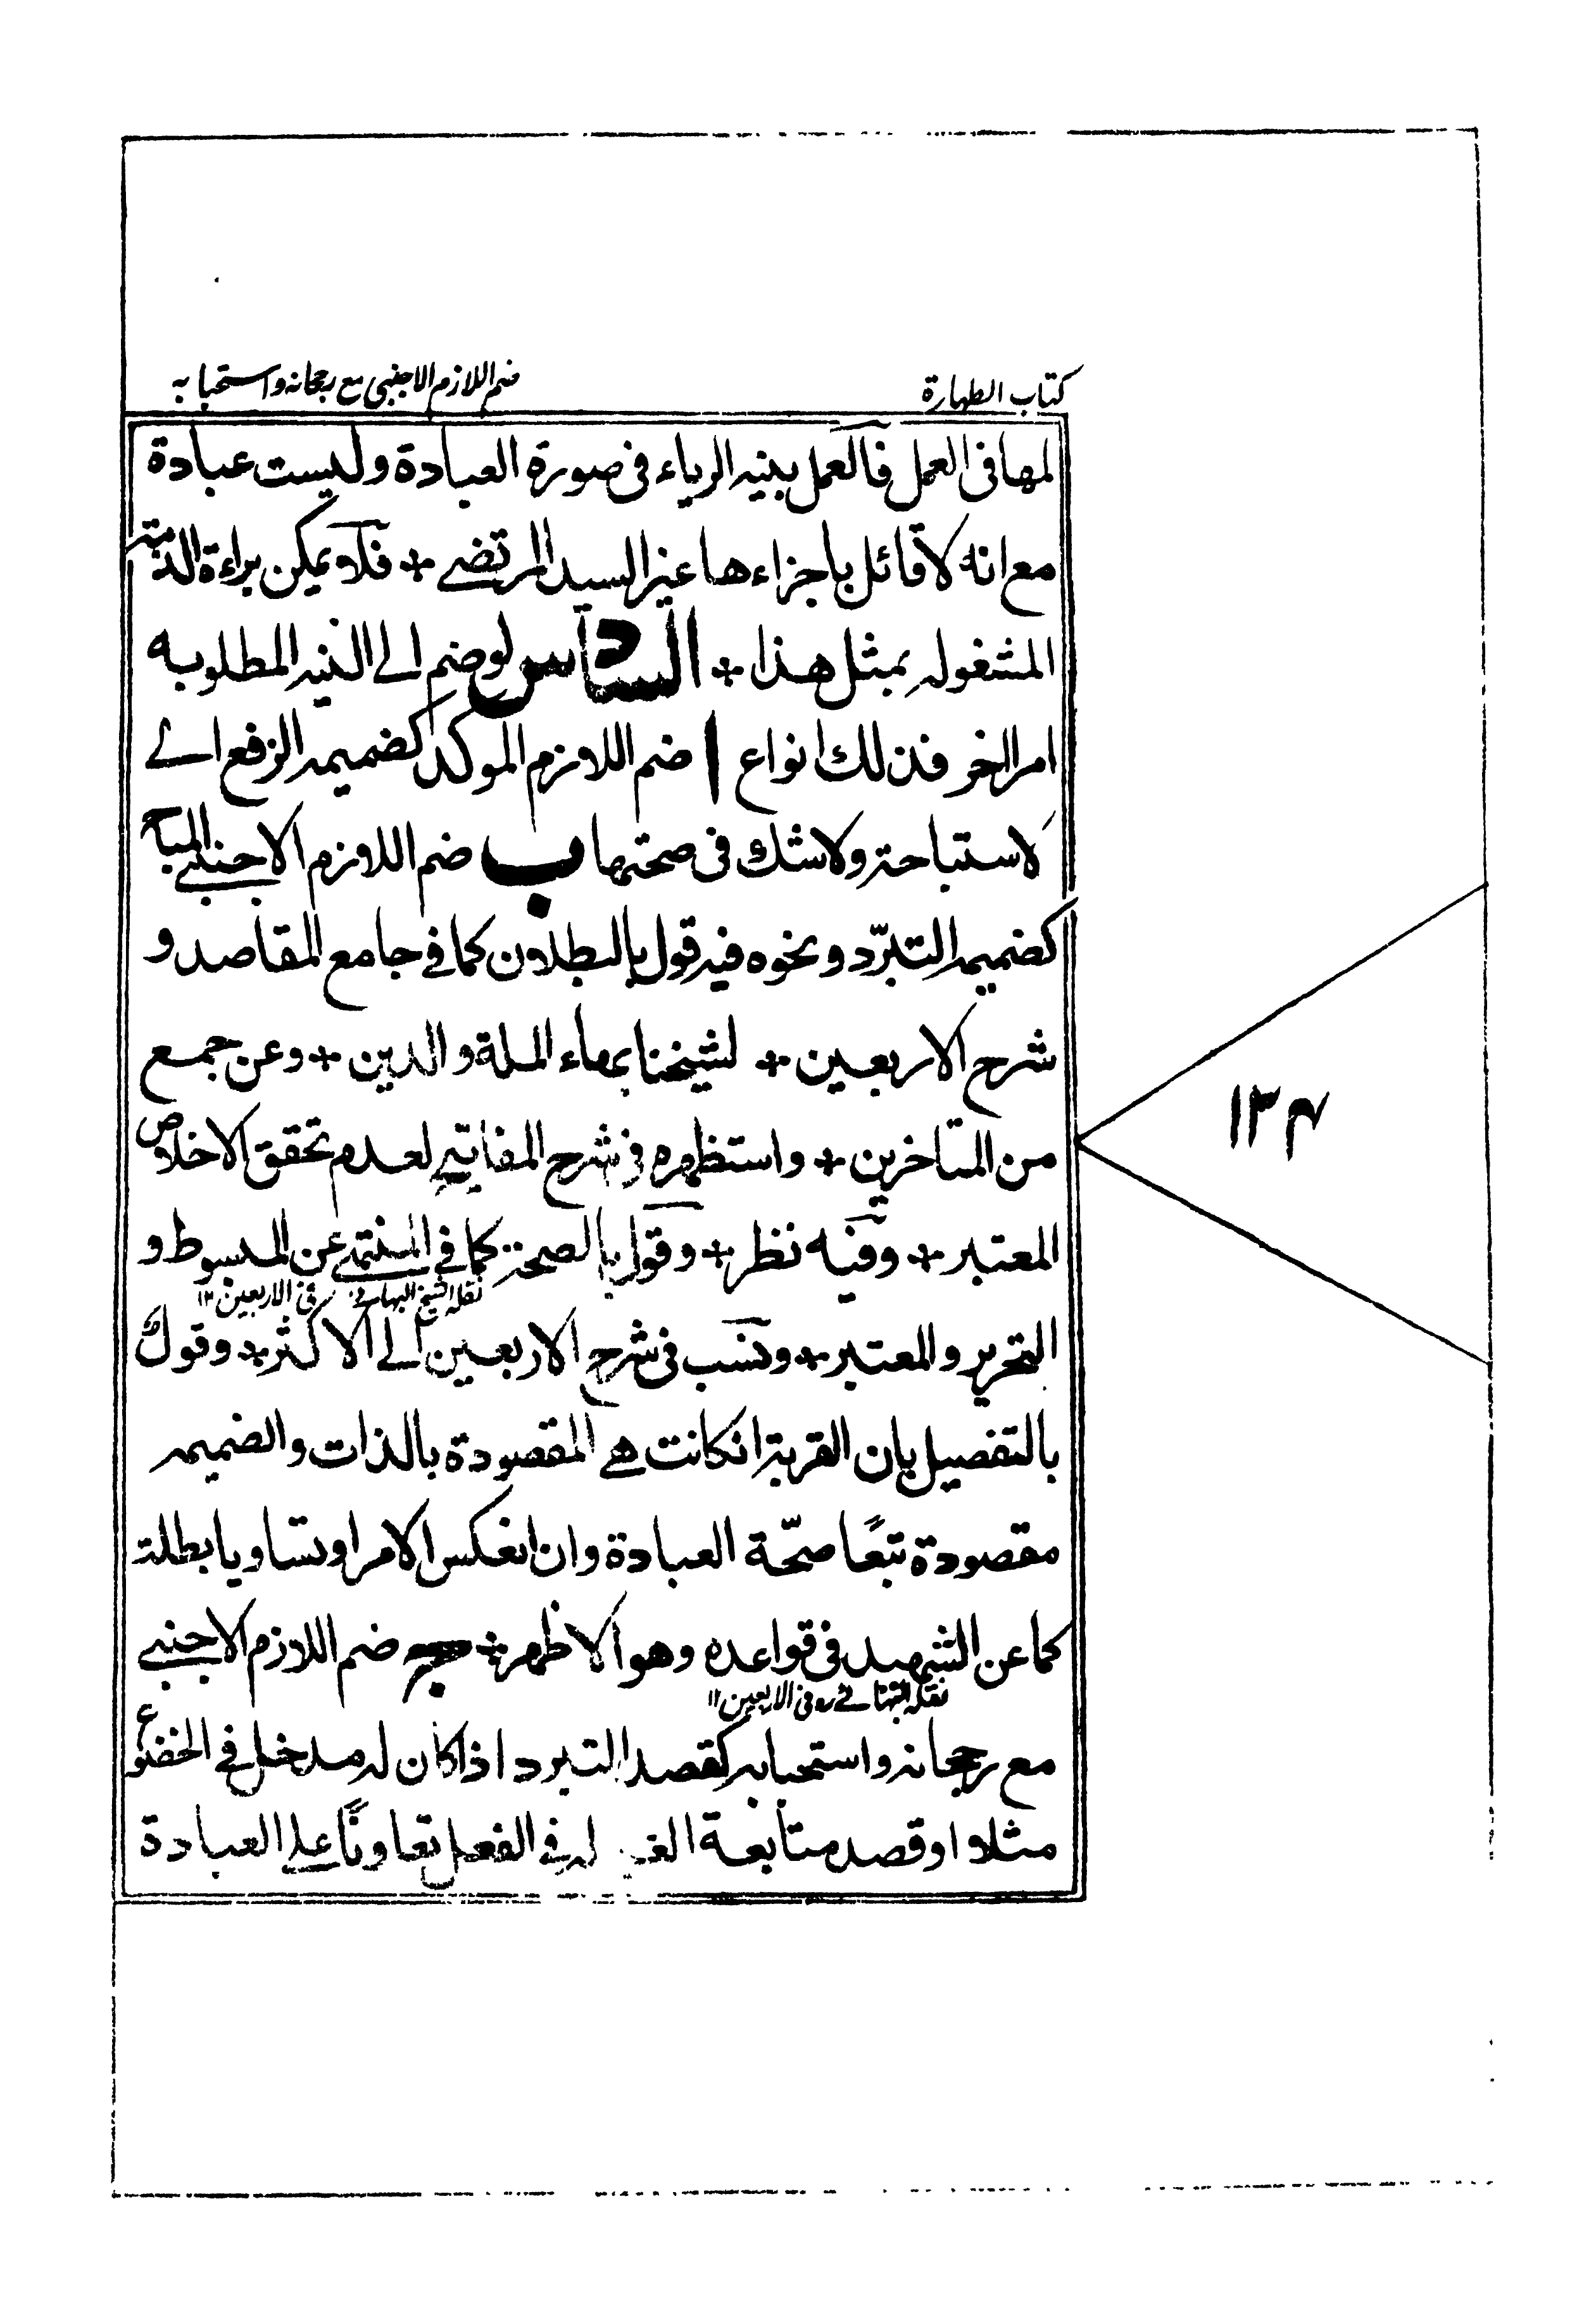 كتاب الطهارة
ضم اللازم الاجنبي مع رجحانه واستحبابه
لها فى العمل فالعمل بنيه الرياء فى صورة العبادة وليست عبادة
مع انه لا قائل باجزاءها غير السيد المرتضے * فلا يمكن براءة الذمة
المشغوله بمثل هذا * السادس لو ضم الى النيه المطلوبه
امرا اخر فذلك انواع ا ضم اللازم الموكد كضميمه الرفع الے
لاستباحة ولا شك فى صحتها ب ضم اللازم الاجنبے المباح
كضميمه التبرّد ونحوه فيه قول بالبطلان كما فے جامع المقاصد و
شرح الاربعين * لشيخنا بهاء الملة والدين * وعن جمع
من المتاخرين * واستظهره فى شرح المفاتيح لعدم تحقق الاخلاص
المعتبر * وفيه نظر * وقول بالصحة كما فے المنتهى عن المبسوط و
نقله الشيخ البهائے فى الاربعين ١٢
التحرير والمعتبر * ونسب فى شرح الاربعين الى الاكثر * وقول
بالتفصيل بان القربة انكانت هے المقصودة بالذات والضميمه
مقصودة تبعًا صحّة العبادة وان انعكس الامر او تساويا بطلت
كما عن الشهيد فى قواعده وهو الاظهر * ج ضم اللازم الاجنبے
نقله البهائے فى الاربعين ١١
مع رجحانه واستحبابه كقصد التبرد اذا كان له مدخل فے الخضوع
مثلا او قصد متابعة له فے الفعل تعاونًا على العبادة
١٣٤